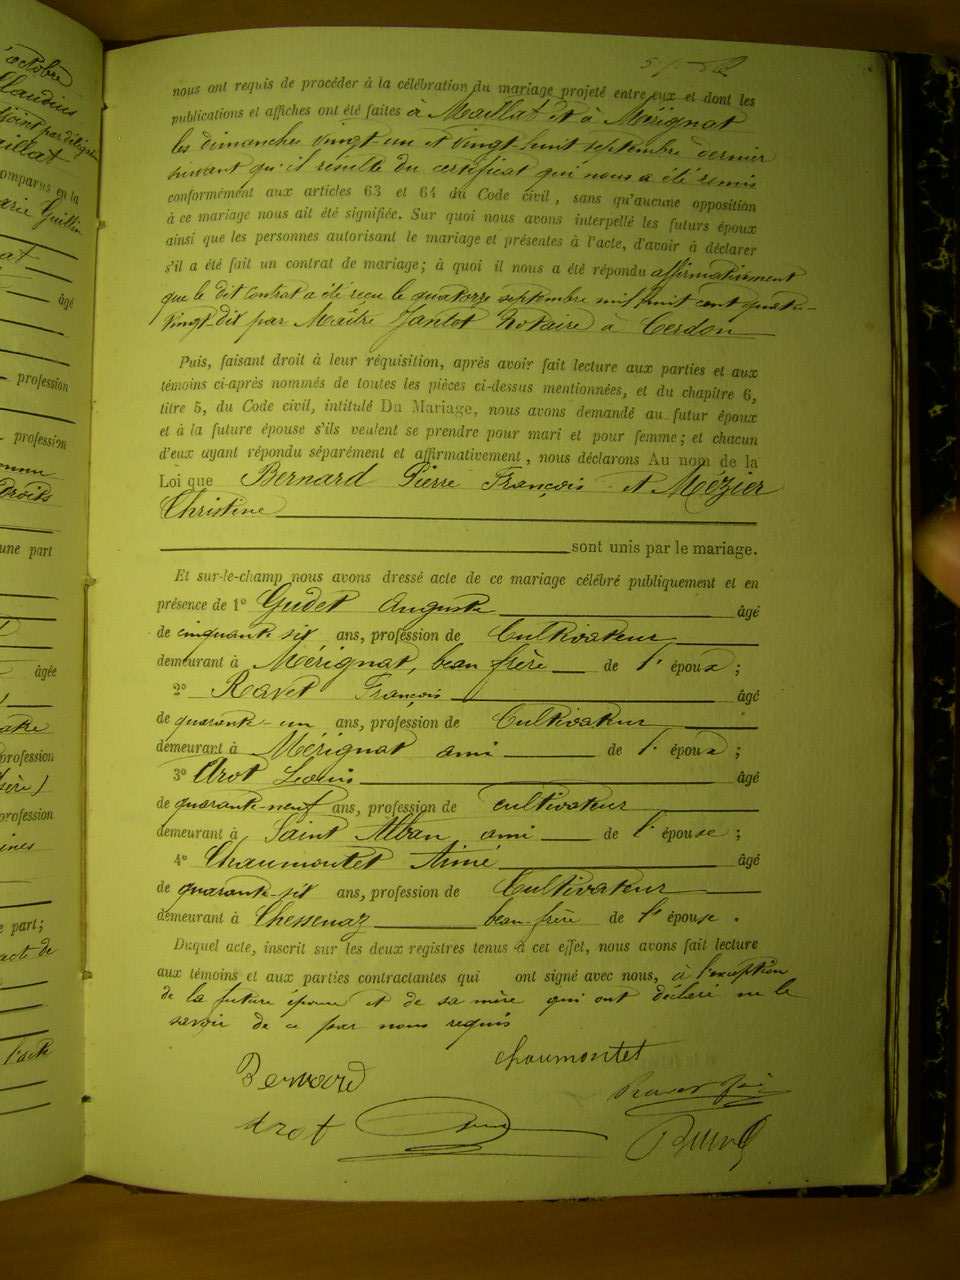 octobre
Claudius
adjoint par délégation
Maillat
comparus en la
Marie Guillin
at
âgé
profession
profession
Droits
une part
âgée
profession
profession
e part;
acte de
l'acte
nous ont requis de procéder à la célébration du mariage projeté entre eux et dont les
publications et affiches ont été faites à Maillat et à Mérignat
les dimanches vingt un et vingt huit septembre dernier
suivant qu'il résulte du certificat qui nous a été remis
conformément aux articles 63 et 64 du Code civil, sans qu'aucune opposition
à ce mariage nous ait été signifiée. Sur quoi nous avons interpellé les futurs époux
ainsi que les personnes autorisant le mariage et présentes à l'acte, d'avoir à déclarer
s'il a été fait un contrat de mariage; à quoi il nous a été répondu affirmativement
que le dit contrat a été reçu le quatorze septembre mil huit cent quatre-
vingt-dix par Maître Jantot Notaire à Cerdon
Puis, faisant droit à leur réquisition, après avoir fait lecture aux parties et aux
témoins ci-après nommés de toutes les pièces ci-dessus mentionnées, et du chapitre 6,
titre 5, du Code civil, intitulé Du Mariage, nous avons demandé au futur époux
et à la future épouse s'ils veulent se prendre pour mari et pour femme; et chacun
d'eux ayant répondu séparément et affirmativement, nous déclarons Au nom de la
Loi que Bernard Pierre François et Mozier
Christine
sont unis par le mariage.
Et sur-le-champ nous avons dressé acte de ce mariage célébré publiquement et en
présence de 1° Gudet Auguste âgé
de cinquante six ans, profession de Cultivateur
demeurant à Mérignat, beau frère de l'époux;
2° Ravet François âgé
de quarante-un ans, profession de Cultivateur
demeurant à Mérignat ami de l'époux;
3° Arot Louis âgé
de quarante-neuf ans, profession de cultivateur
demeurant à Saint Alban, ami de l'épouse;
4° Chaumontet Aimé âgé
de quarante-six ans, profession de Cultivateur
demeurant à Chessenaz beau-frère de l'épouse.
Duquel acte, inscrit sur les deux registres tenus à cet effet, nous avons fait lecture
aux témoins et aux parties contractantes qui ont signé avec nous, à l'exception
de la future épouse et de sa mère qui ont déclaré ne le
savoir de ce par nous requis
Bernard
chaumontet
Arot